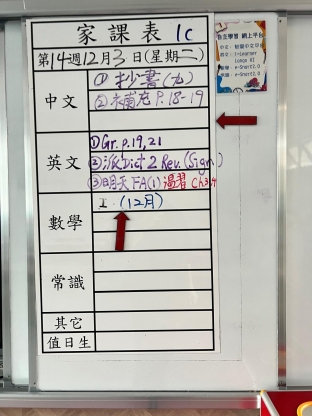 家課表 1C
第14週12月3日(星期二)
中文
①抄書(九)
②補充P.18-19
英文
①Gr. p.19,21
②派Dict 2 Rev. (Sign)
③明天FA(1) 溫習 Ch3,4
數學
(12月)
常識
其它
值日生
自主學習 網上平台